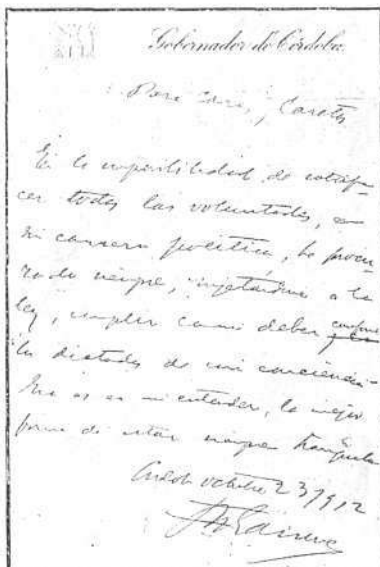 Gobernador de Córdoba
Para Caras y Caretas
En la imposibilidad de satisfa-
cer todas las voluntades, en
mi carrera política, he procu-
rado siempre, sujetándome a la
ley, cumplir con mi deber conforme
los dictados de mi conciencia
es a mi entender, la mejor
forma de estar siempre tranquilo
octubre 23/912